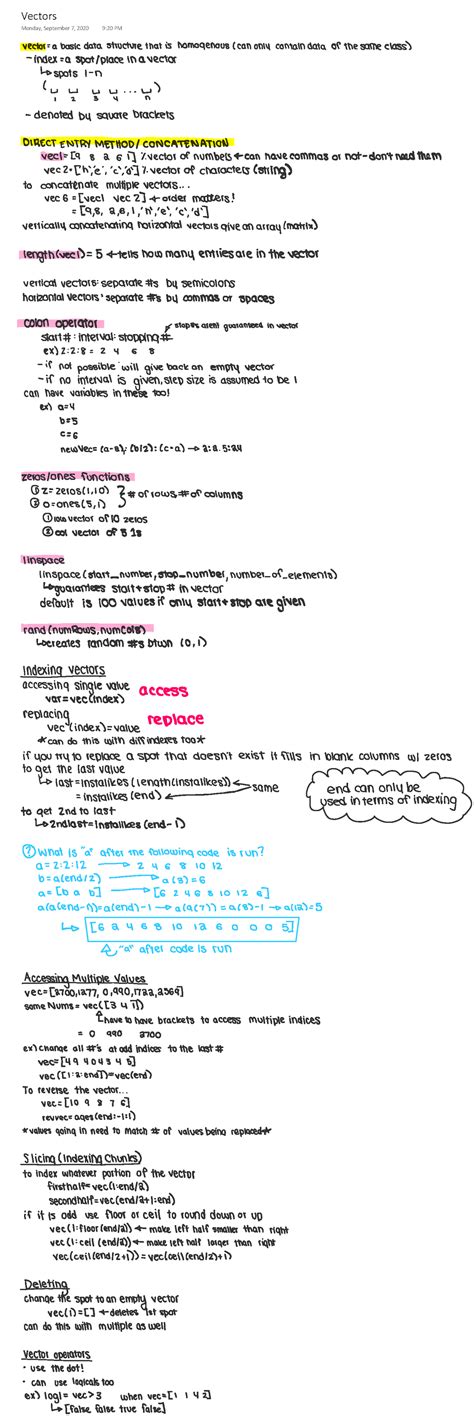 Vectors
Monday, September 7, 2020 9:20 PM
vector = a basic data structure that is homogenous (can only contain data of the same class)
- index = a spot/place in a vector
↳ spots 1-n
( ... )
1 2 3 4 n
- denoted by square brackets
DIRECT ENTRY METHOD/CONCATENATION
vec1 = [9 8 2 6 1] % vector of numbers ← can have commas or not - don't need them
vec2 = ['h','e','c','d'] % vector of characters (string)
to concatenate multiple vectors...
vec6 = [vec1 vec2] ← order matters!
= [9,8, 2,6,1,'h','e','c','d']
vertically concatenating horizontal vectors give an array (matrix)
length(vec1) = 5 ← tells how many entries are in the vector
vertical vectors: separate #s by semicolons
horizontal vectors: separate #s by commas or spaces
colon operator
stop #s arent guaranteed in vector
start # : interval : stopping #
ex) 2:2:8 = 2 4 6 8
- if not possible will give back an empty vector
- if no interval is given, step size is assumed to be 1
can have variables in these too!
ex) a=4
b=5
c=6
newVec = (a-2):(b/2):(c*a) → 2:2.5:24
zeros/ones functions
① z = zeros(1,10) } # of rows, # of columns
② o = ones(5,1)
① row vector of 10 zeros
② col vector of 5 1s
linspace
linspace (start_number, stop_number, number_of_elements)
↳ guarantees start + stop # in vector
default is 100 values if only start + stop are given
rand (numRows, numCols)
↳ creates random #s btwn (0,1)
Indexing Vectors
accessing single value access
var = vec(index)
replacing replace
vec (index) = value
*can do this with diff indexes too*
if you try to replace a spot that doesn't exist it fills in blank columns w/ zeros
to get the last value
↳ last = instalikes (length(instalikes)) ← same
= instalikes (end) ←
end can only be
used in terms of indexing
to get 2nd to last
↳ 2ndlast = instalikes (end-1)
? What is "a" after the following code is run?
a = 2:2:12 → 2 4 6 8 10 12
b = a(end/2) → a(3) = 6
a = [b a b] → [6 2 4 6 8 10 12 6]
a(a(end-1)) = a(end)-1 → a(a(7)) = a(8)-1 → a(12) = 5
↳ [6 2 4 6 8 10 12 6 0 0 0 5]
"a" after code is run
Accessing Multiple Values
vec = [2700,1277, 0,990,1722,2569]
some Nums = vec([3 4 1])
↳ have to have brackets to access multiple indices
= 0 990 2700
ex) change all #'s at odd indices to the last #
vec = [49 40 4 3 4 5]
vec ([1:2:end]) = vec(end)
To reverse the vector...
vec = [10 9 8 7 6]
revvec = ages(end:-1:1)
*values going in need to match # of values being replaced*
Slicing (Indexing Chunks)
to index whatever portion of the vector
firsthalf = vec(1:end/2)
secondhalf = vec(end/2+1:end)
if it is odd use floor or ceil to round down or up
vec(1:floor(end/2)) ← make left half smaller than right
vec(1:ceil(end/2)) ← make left half larger than right
vec(ceil(end/2+1)) = vec(ceil(end/2)+1)
Deleting
change the spot to an empty vector
vec(1) = [] ← deletes 1st spot
can do this with multiple as well
Vector operators
• use the dot!
• can use logicals too
ex) log1 = vec>3 when vec = [1 1 4 2]
↳ [false false true false]